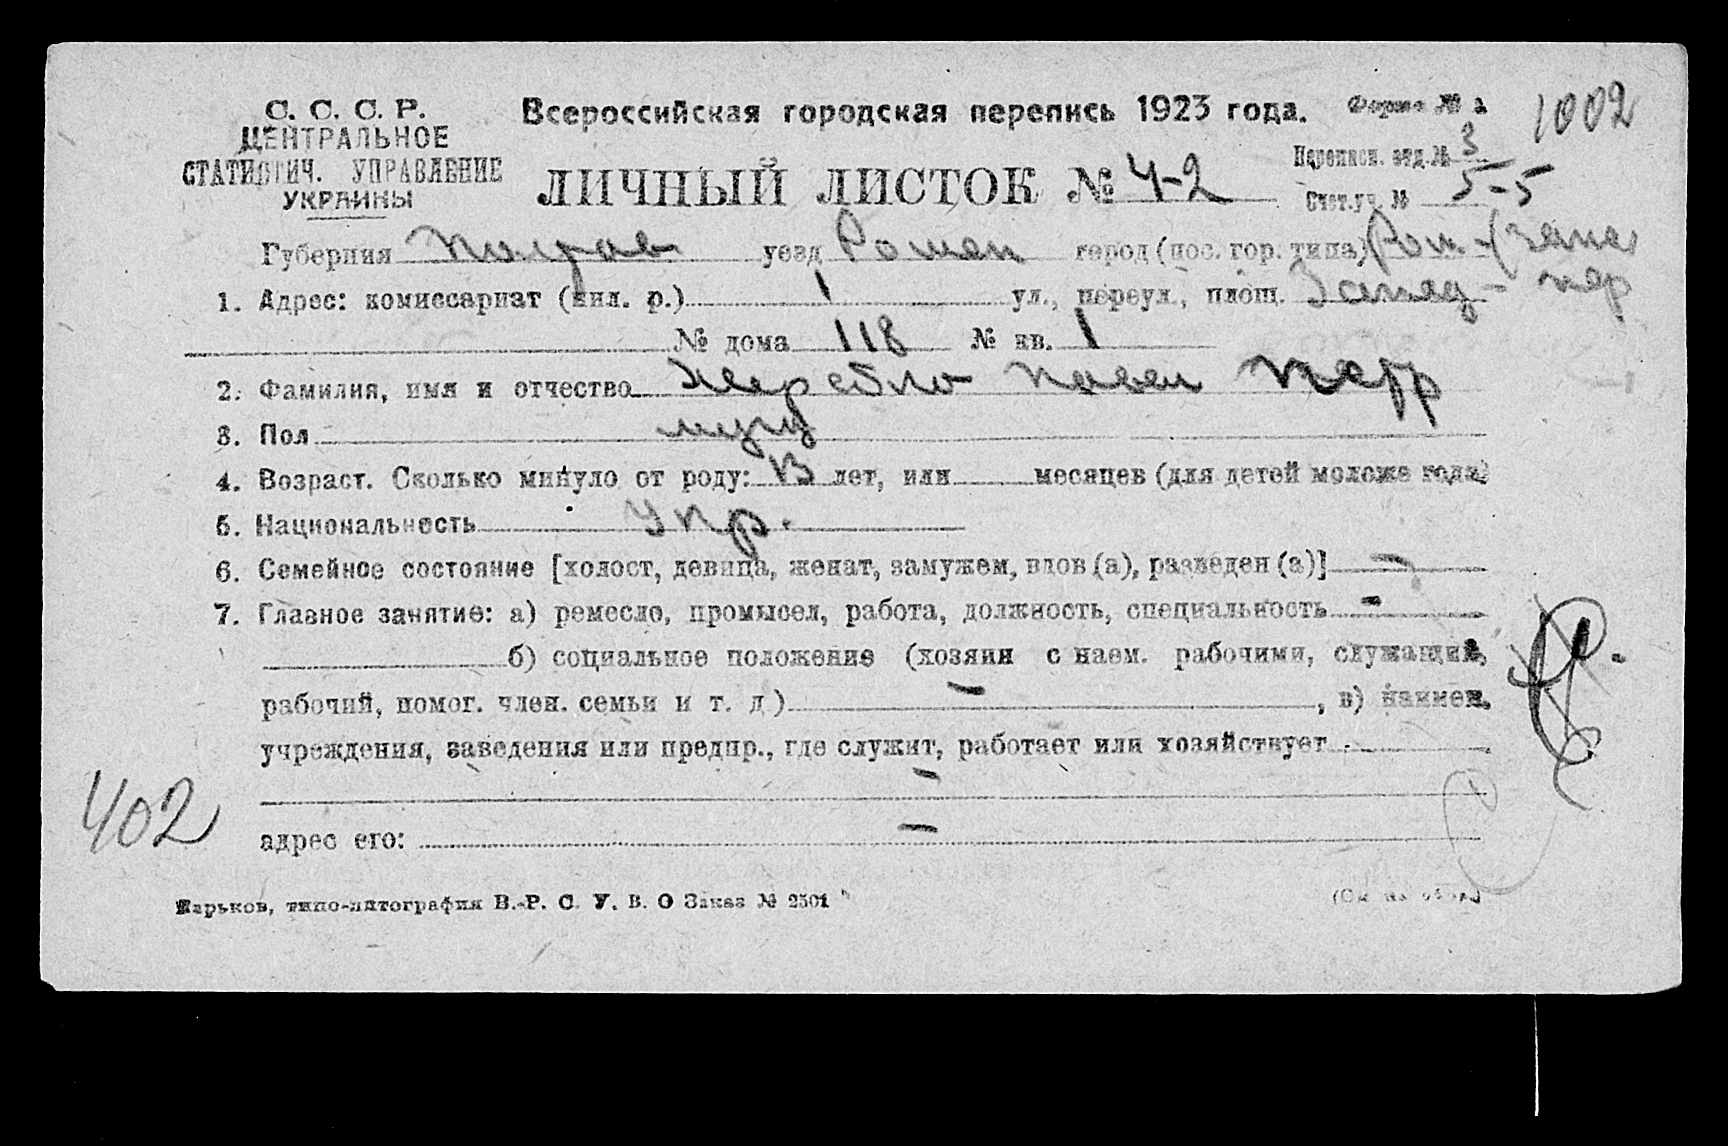 С. С. С. Р.
ЦЕНТРАЛЬНОЕ
СТАТИСТИЧ. УПРАВЛЕНИЕ
УКРАИНЫ
Всероссийская городская перепись 1923 года.
Форма № 1002
ЛИЧНЫЙ ЛИСТОК № 4-2
Переписн. отд. № 3
Счет. уч. № 5-5
Губерния Полтав уезд Ромен город (пос. гор. типа) Ром
1. Адрес: комиссариат (мил. р.) 1 ул., переул., площ. Запад- пер
№ дома 118 № кв. 1
2. Фамилия, имя и отчество Жеребло Павел
3. Пол муж
4. Возраст. Сколько минуло от роду: 13 лет, или месяцев (для детей моложе года)
5. Национальность Укр.
6. Семейное состояние [холост, девица, женат, замужем, вдов (а), разведен (а)] -
7. Главное занятие: а) ремесло, промысел, работа, должность, специальность -
б) социальное положение (хозяин с наем. рабочими, служащий,
рабочий, помог. член. семьи и т. д) - , в) наимен.
учреждения, заведения или предпр., где служит, работает или хозяйствует
-
адрес его: -
402
Харьков, типо-литография В.-Р. С. У. В. О Заказ № 2501
(См на обор.)